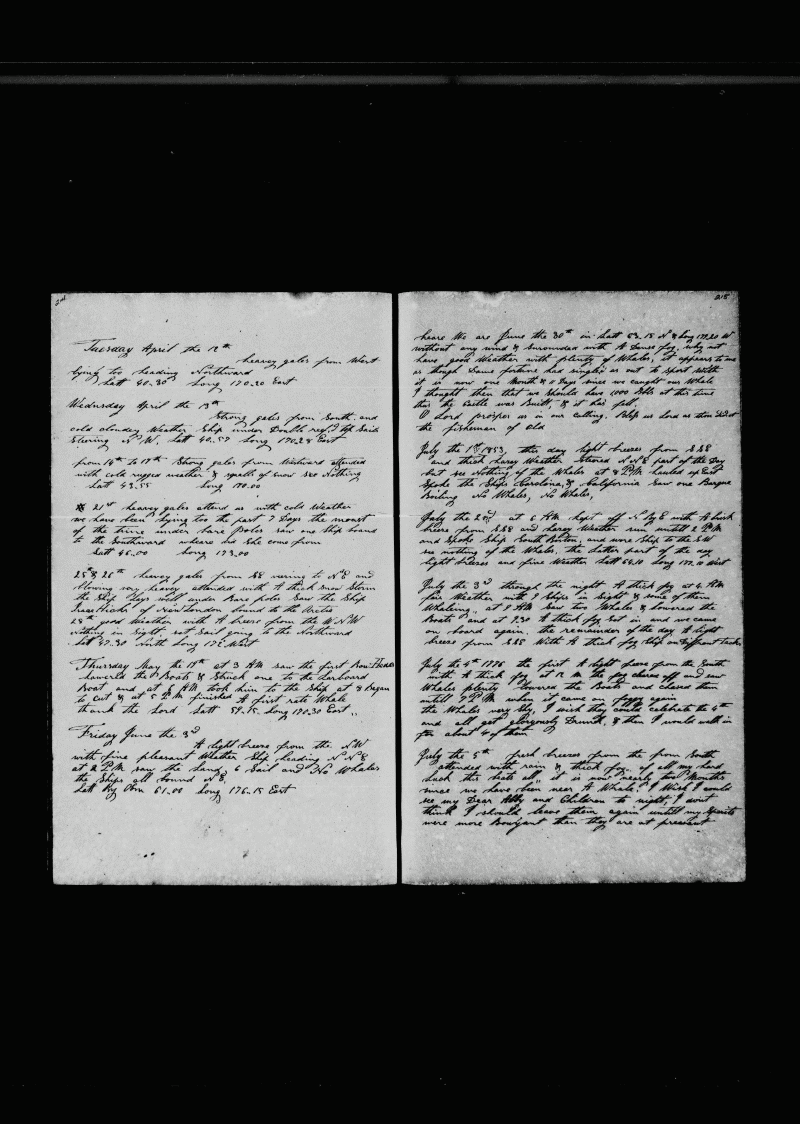 Tuesday April the 12th
heavey gales from West
lying too heading Northward
Latt 40.30 Long 170.20 East
Wednesday April the 13th
Strong gales from South and
cold cloudey Weather Ship under Double reefd top Sails
Stering N W. Latt 40.57 Long 170.24 East
from 14th to 17th Strong gales from Westward attended
with cold rugged weather & squalls of Snow see Nothing
Latt 43.55 Long 170.00
21st heavey gales attend us with cold Weather
we have been lying too the past 7 Days the moast
of the time under bare Poles saw one Ship bound
to the Southward wheare did She come from
Latt 45.00 Long 173.00
25th & 26th heavey gales from SE vering to N E and
blowing very heavey attended with A thick Snow Storm
the Ship lays well under Bare poles Saw the Ship
of New London bound to the Arctic
28th good Weather with A breese from the W N W
nothing in Sight. not Sail going to the Northward
Latt 47.30 North Long West
Thursday May the 19th at 3 AM saw the first Bow Heads
lowered the Boats & Struck one to the Larboard
Boat and at 6 AM took him to the Ship at 8 Began
to cut & at 5 P M finished A first rate Whale
thank the Lord Latt 59.15 Long 170.30 East
Friday June the 3d
A light breese from the N W
with fine pleasant Weather Ship heading N N E
at 2 P M saw the Land, 6 Sail and No Whales
the Ships all bound N E.
Latt By Obn 61.00 Long 176.15 East
215
heare We are June the 30th in Latt 63.15 N & Long W
without any wind & Surounded with A Dence fog, why not
have good Weather with plenty of Whales, it appears to me
as though Dame fortune had singled us out to Sport With
it is now one Month & 11 Days since we caught our Whale
I thought then that we Should have 1000 Bbls at this time
this the Castle was Built, & it has fell.
O Lord prosper us in our calling. Bless us Lord as thou did
the fisheman of Old
July the 1st 1853 this day light breeses from S S E
and thick hazey Weather Steared N N E part of the Day
but see Nothing of the Whales at 8 P.M hauled up East
Spoke the Ships Carolina, & California Saw one Barque
Boiling No Whales, No Whales,
July the 2nd at 6 AM kept off N by E with A brisk
breese from SSE and hazey Weather run untill 2 P M
and Spoke Ship South Boston, and wore Ship to the S W
see nothing of the Whales, the latter part of the day
light breeses and fine Weather Latt Long 172.10 West
July the 3d through the night A thick fog at 4 AM
fair Weather with 9 Ships in Sight & some of them
Whaleing, at 9 AM saw two Whales & lowered the
Boats and at 9.30 A thick fog Set in and we came
on board again, the remainder of the day A light
breese from SSE With A thick fog Ship on Different tacks
July the 4th 1776 the first A light breese from the South
with A thick fog at 12 M the fog cleared off and saw
Whales plenty lowered the Boats and chased them
untill 7 P.M when it came on foggy again
the Whales very shy, I wish they would celebrate the 4th
and all get gloryously Drunk, & then I would walk in
for about 4 of them
July the 5th fresh breeses from the from South
attended with rain & thick fog, of all my hard
Luck this beats all, it is now nearly two Months
since we have been near A Whale! I Wish I could
see my Dear Abby and Children to night, I dont
think I should leave them again untill my Spirits
were more Bouyant then they are at presant